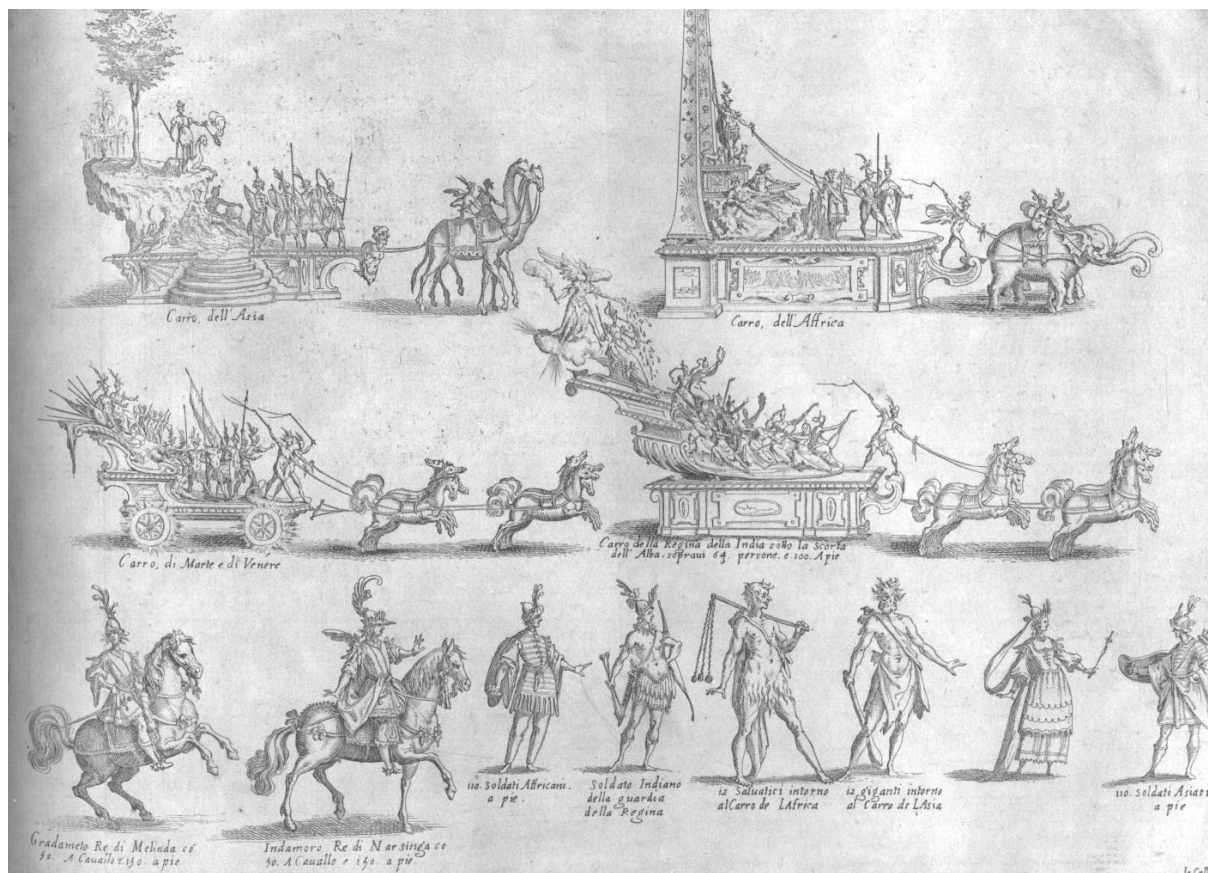 Carro, dell'Asia
Carro, dell'Affrica
Carro, di Marte e di Venere
Carro della Regina della India sotto la Scorta
dell'Alba. sopraui 64. persone. e. 100. A pie
Gradameto Re di Melinda co
50. A Cauallo e. 150. a pie
Indamoro Re di Narsinga co
50. A Cauallo e 150. a pie.
110. Soldati Affricani.
a pie.
Soldato Indiano
della guardia
della Regina
12 Saluatici intorno
al Carro de LAfrica
12 giganti intorno
al Carro de LAsia
110. Soldati Asiati
a pie